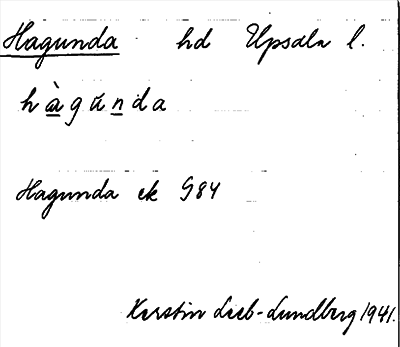 Hagunda hd Upsala l.
hàgúnda
Hagunda ek G84
Kerstin Lieb-Lundberg 1941.